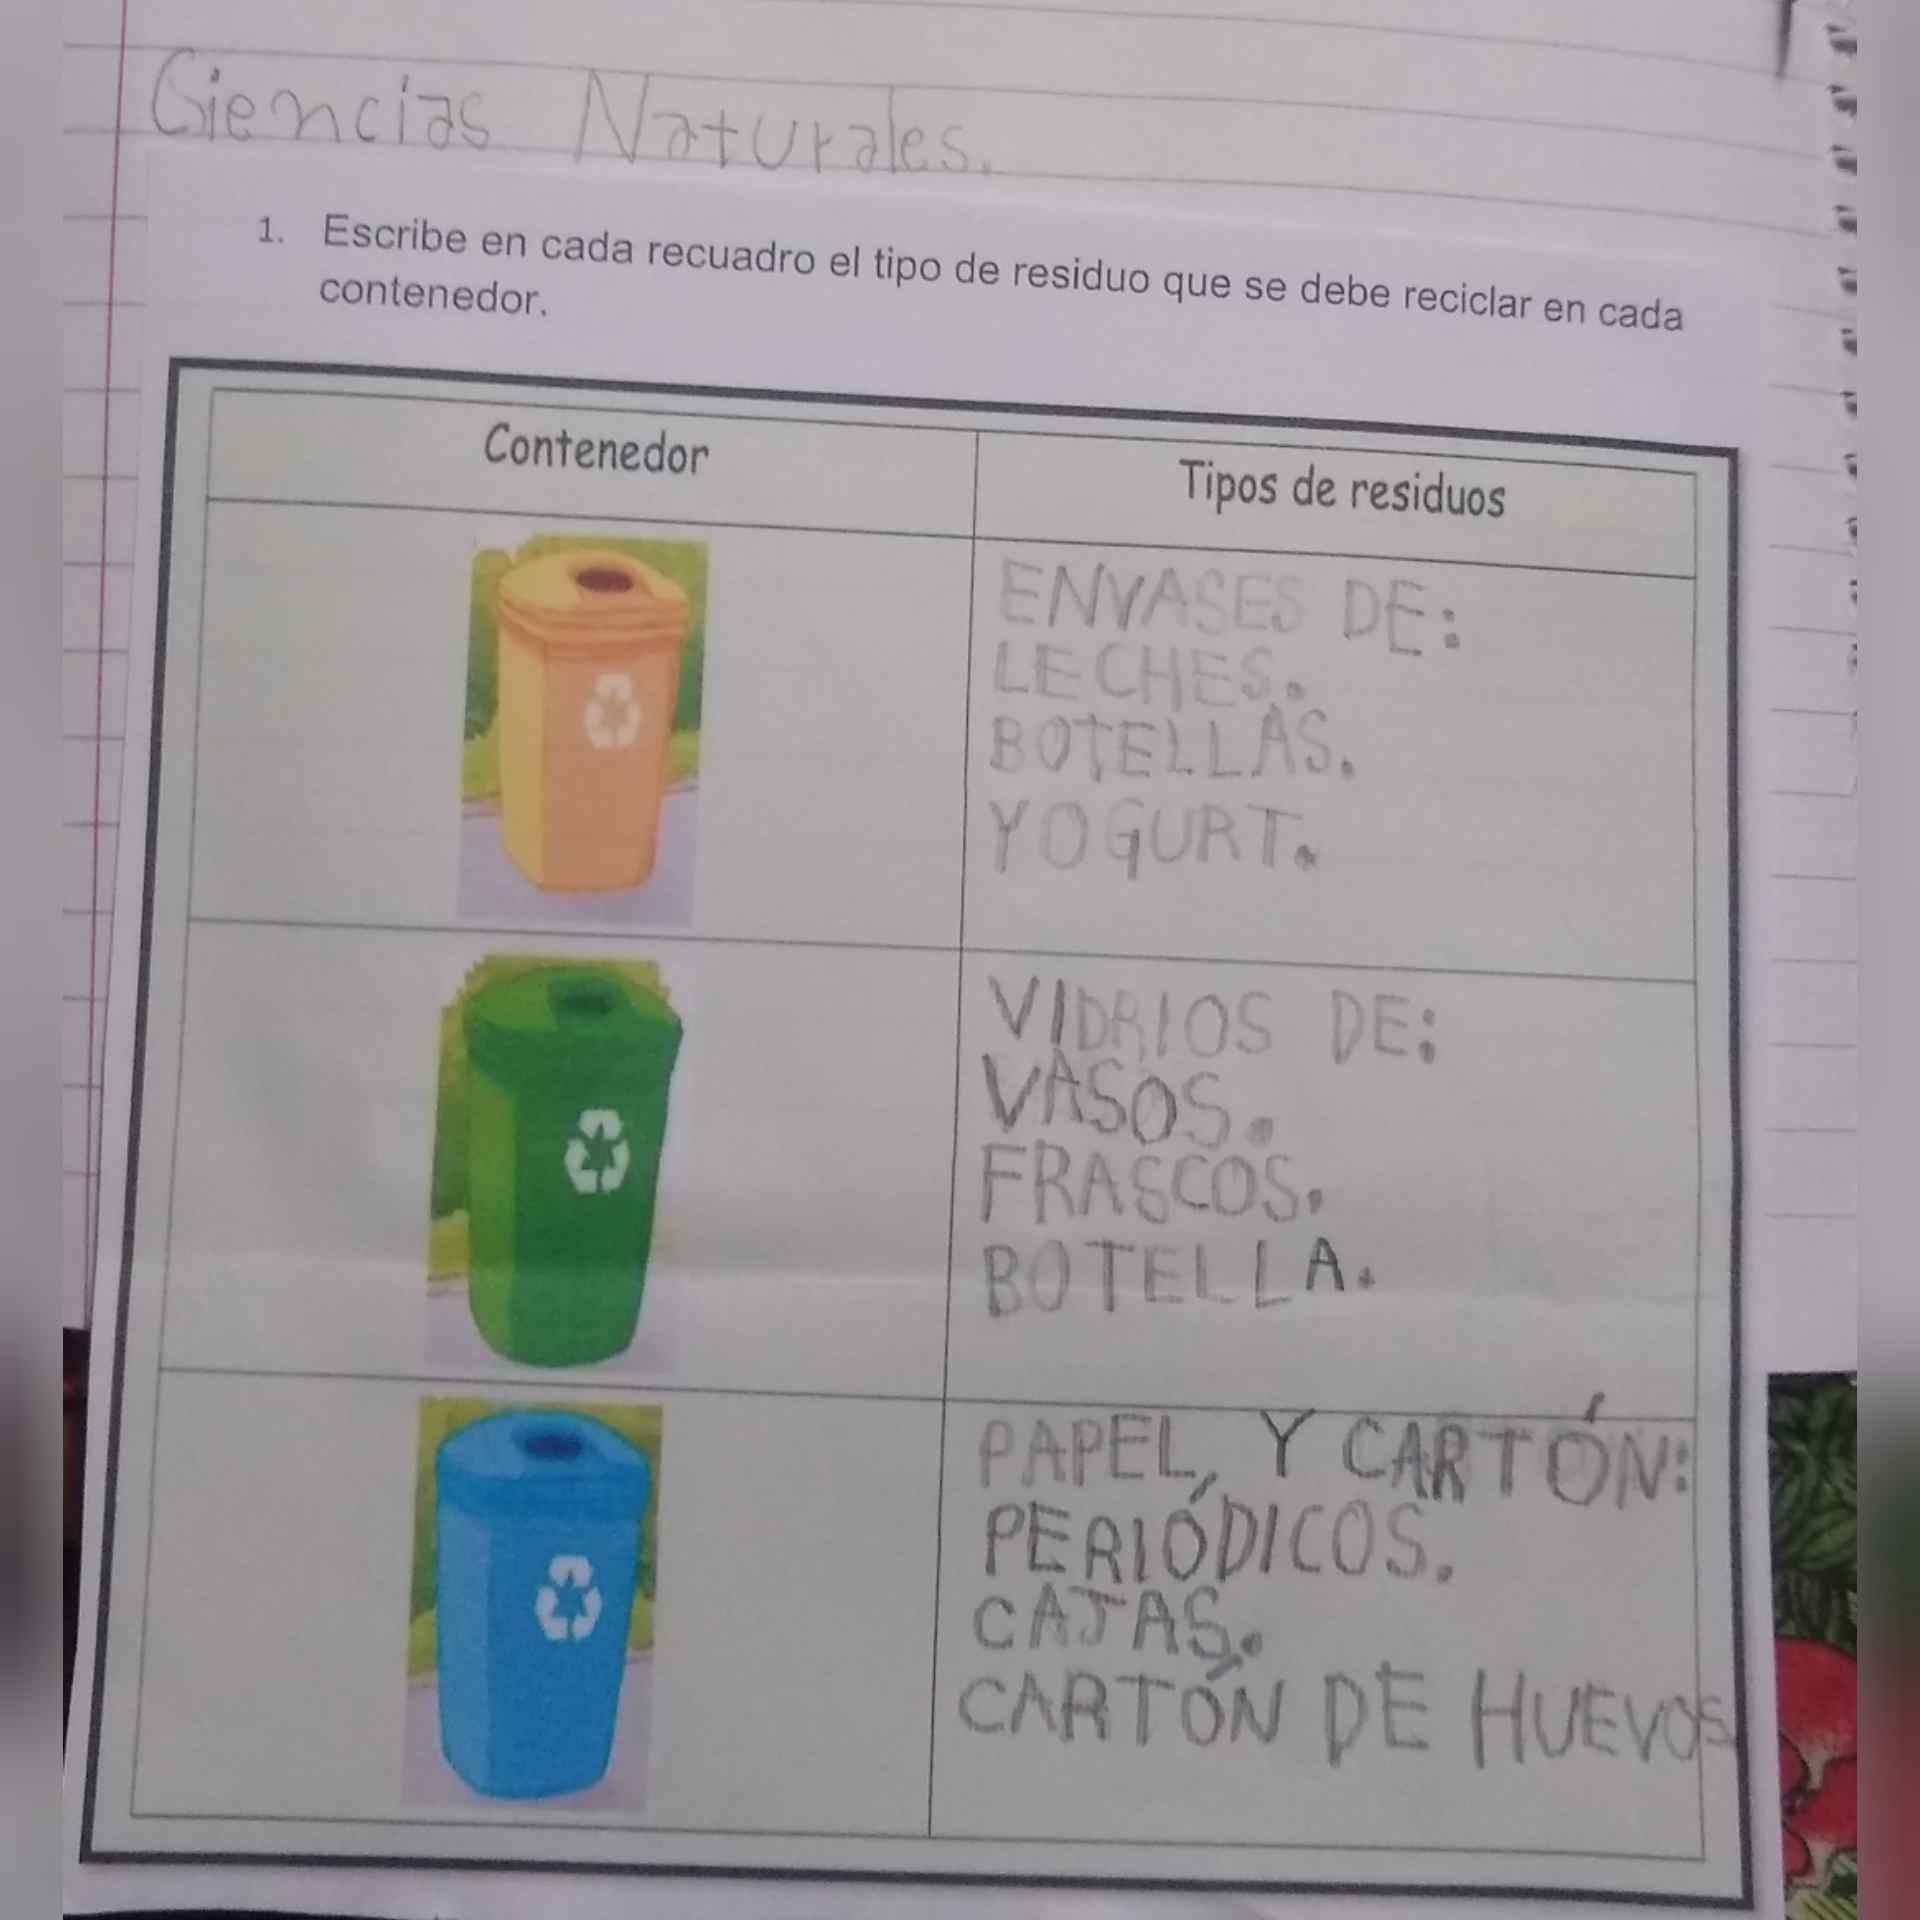 Ciencias Naturales.
1. Escribe en cada recuadro el tipo de residuo que se debe reciclar en cada
contenedor.
Contenedor
Tipos de residuos
ENVASES DE:
LECHES.
BOTELLAS.
YOGURT.
VIDRIOS DE:
VASOS.
FRASCOS.
BOTELLA.
PAPEL, Y CARTÓN:
PERIÓDICOS.
CAJAS.
CARTÓN DE HUEVOS